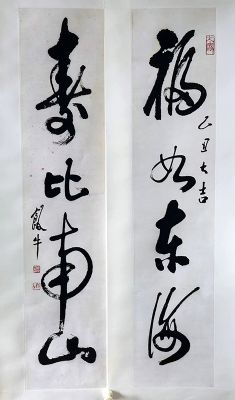 福如东海
己丑大吉
寿比南山